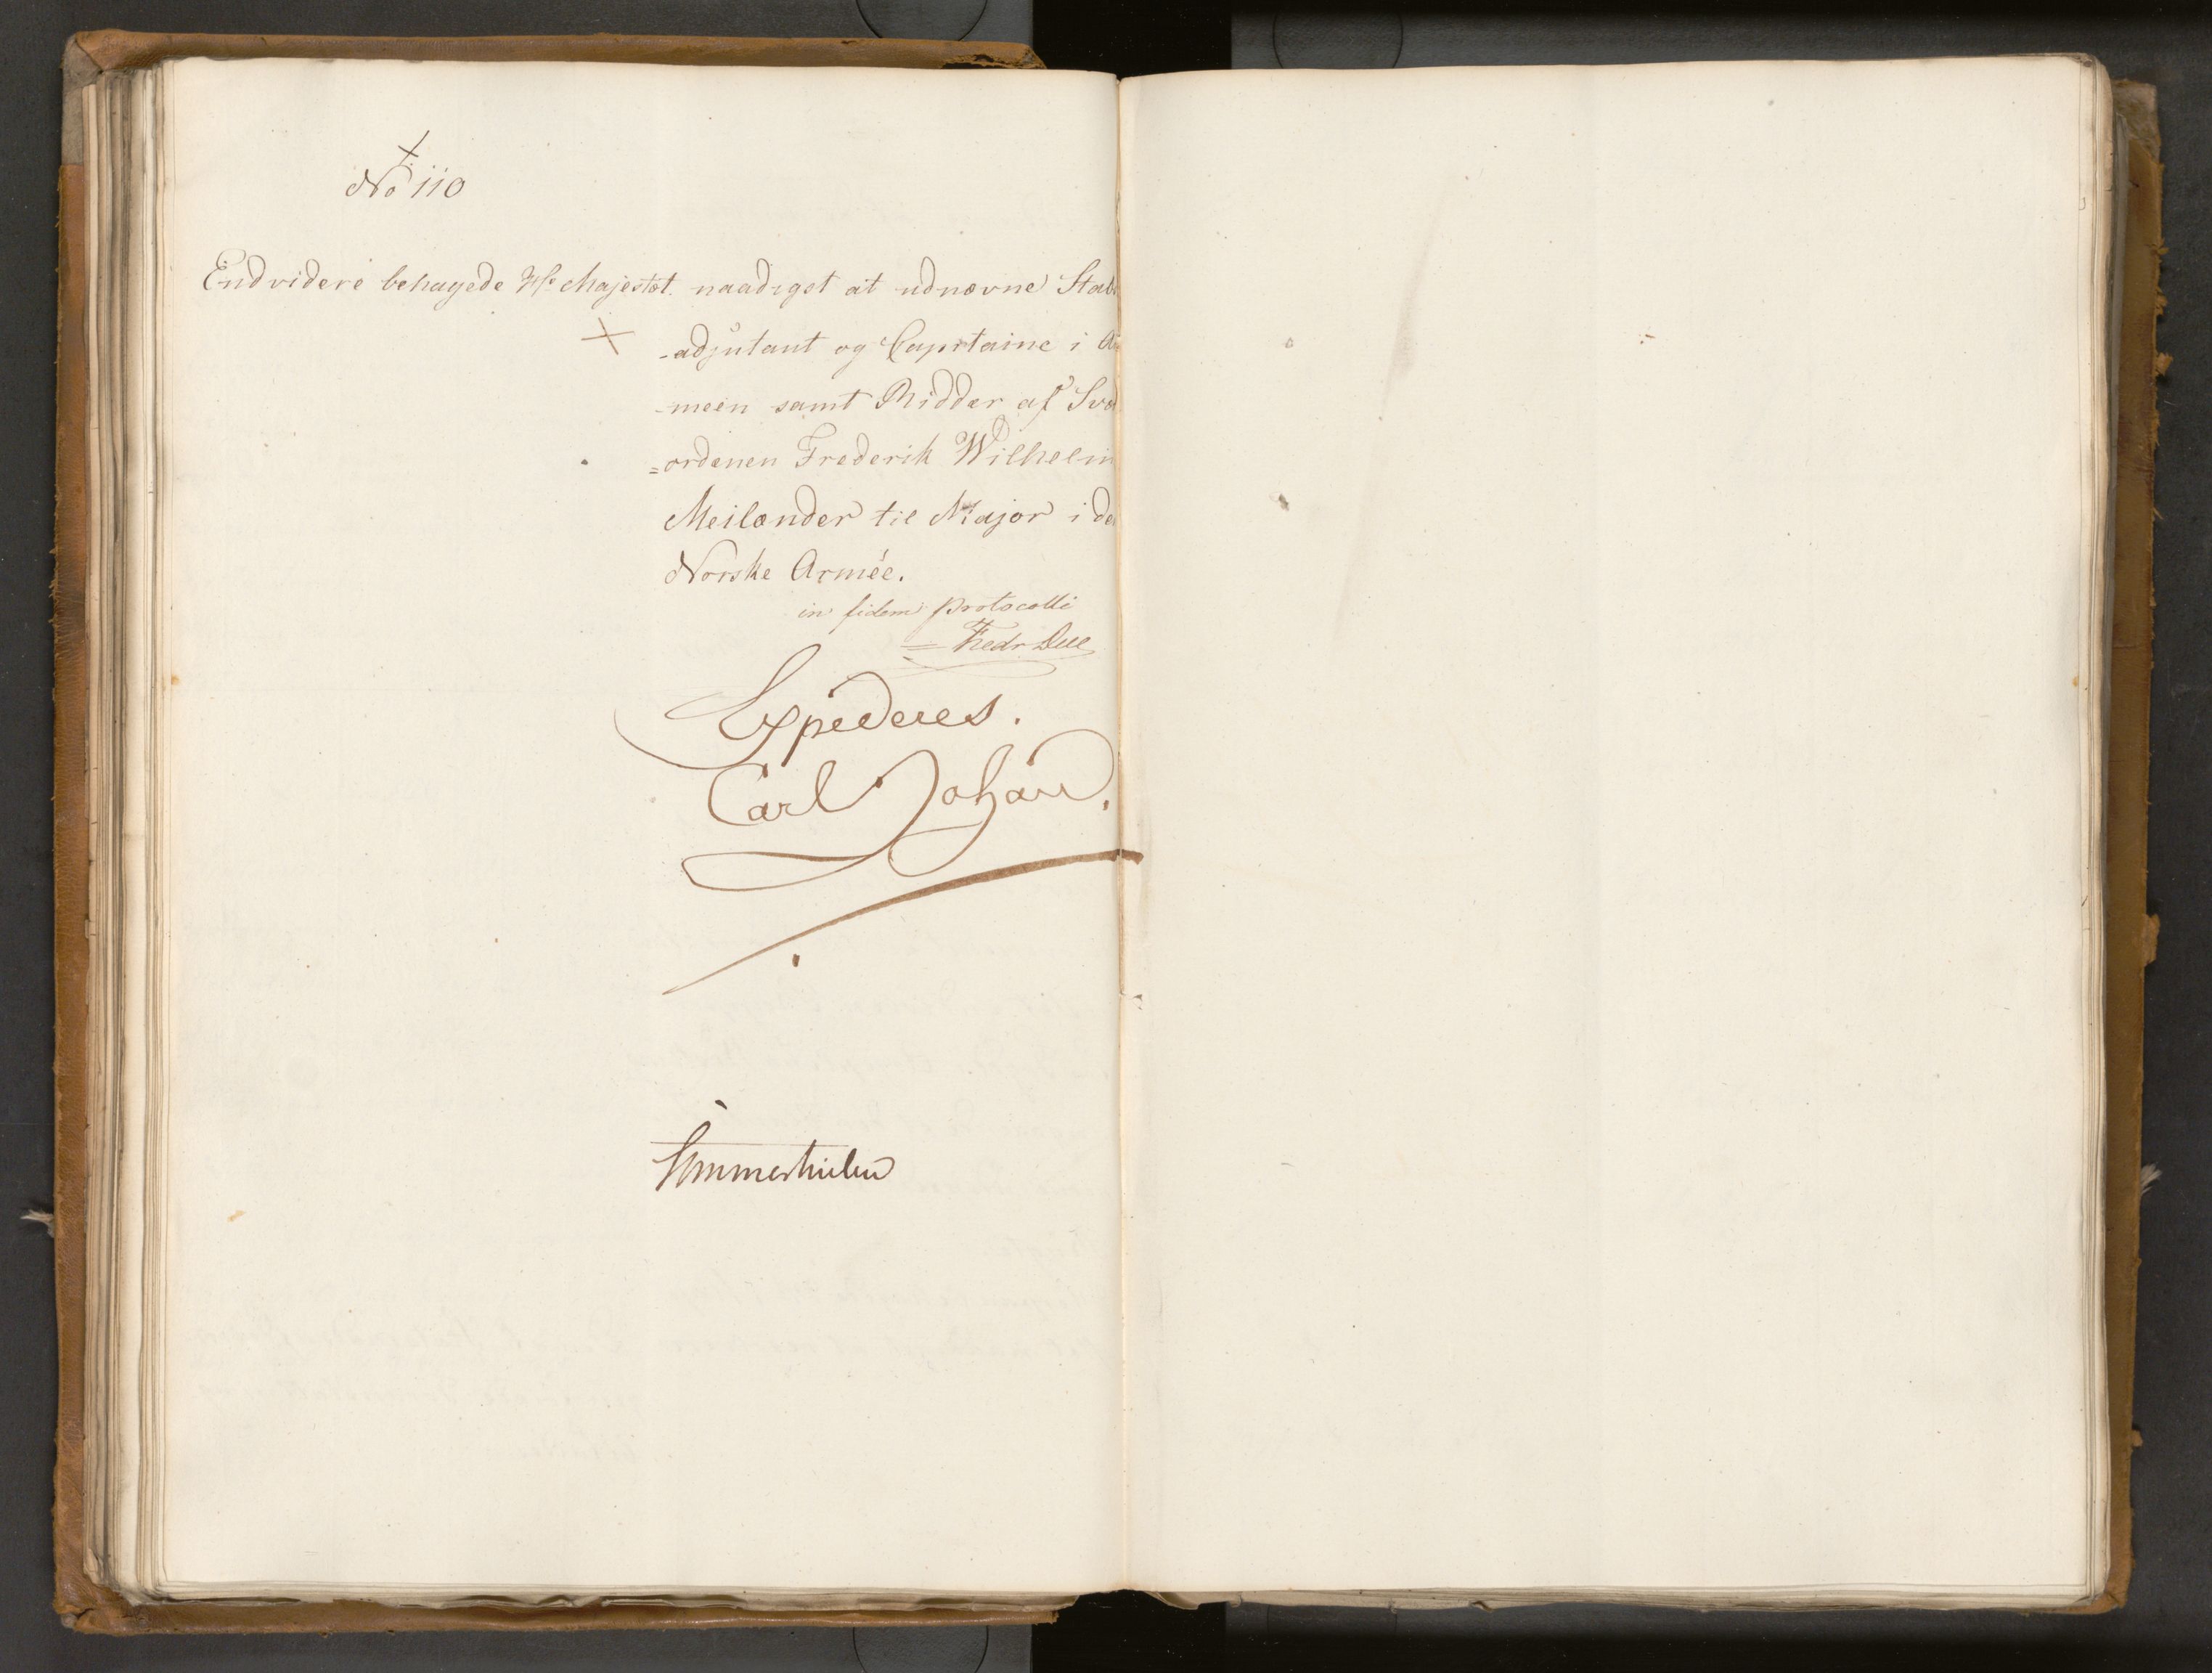 No 110
Endvidere behagede Hs Majestæt naadigst at udnævne Stabs
-adjutant og Capitaine i Ar
-meen samt Ridder af Sværd
=ordenen Frederik Wilhelm
Meilænder til Major i den
Norske Armée.
in fidem Protocolli
Fredr Due
Expederes.
Carl Johan.
Sommerhielm